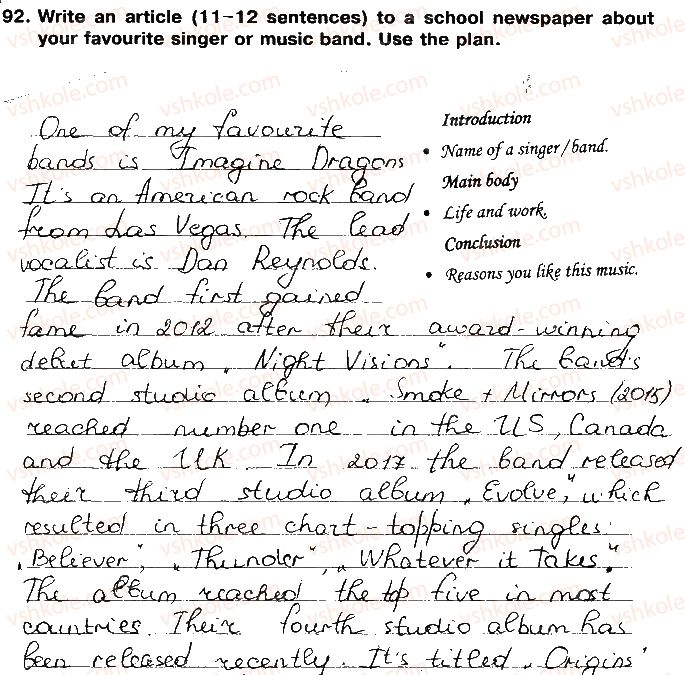 92. Write an article (11–12 sentences) to a school newspaper about
your favourite singer or music band. Use the plan.
One of my favourite
bands is Imagine Dragons
It's an American rock band
from Las Vegas. The lead
vocalist is Dan Reynolds.
The band first gained
Introduction
• Name of a singer/band.
Main body
• Life and work.
Conclusion
• Reasons you like this music.
fame in 2012 after their award-winning
debut album „Night Visions". The band's
second studio album „Smoke + Mirrors (2015)
reached number one in the US, Canada
and the UK. In 2017 the band released
their third studio album „Evolve," which
resulted in three chart-topping singles:
„Believer", „Thunder", „Whatever it Takes."
The album reached the top five in most
countries. Their fourth studio album has
been released recently. It's titled „Origins"
vshkole.com